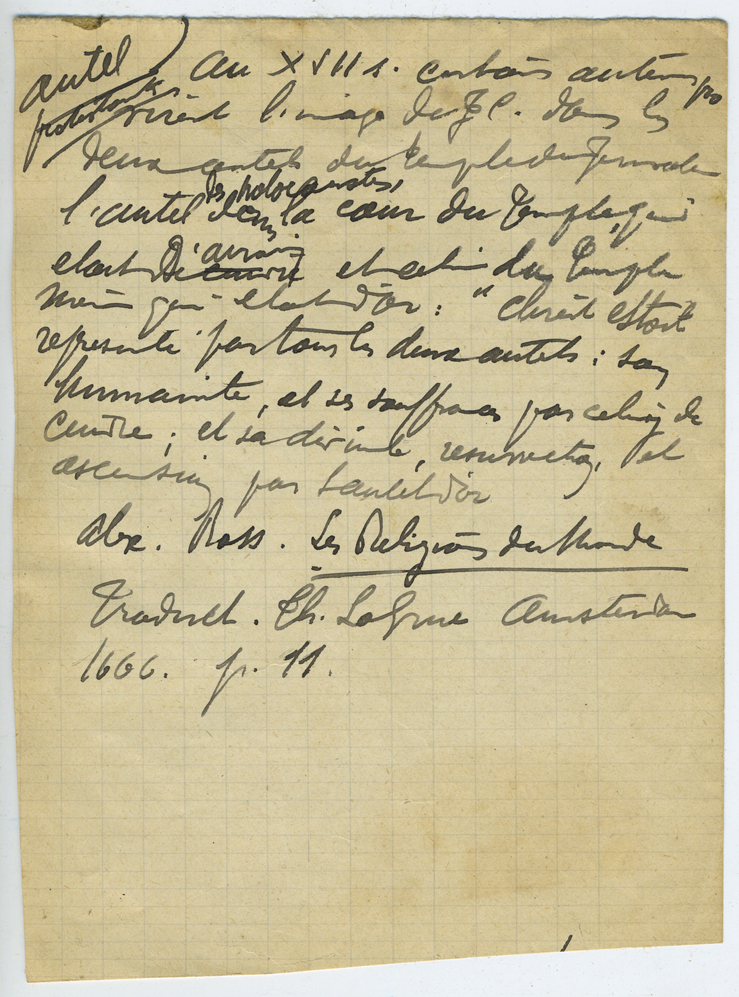 autel Au XVII s. certains auteurs pro
testants virent l'image de J. C. dans les
deux autels du temple de Jerusalem
des holocaustes,
l'autel dans la cour du Temple, qui
d'airain
etait de cuivre et celui du Temple
même qui etait d'or : "Christ estoit
represente par tous les deux autels : son
humanite, et ses souffrances par celuy de
cuivre ; et sa divinite, resurrection, et
ascension par l'autel d'or
Alex. Ross. Les Religions du Monde
Traduct. Th. La Grue Amsterdam
1666. p. 11.